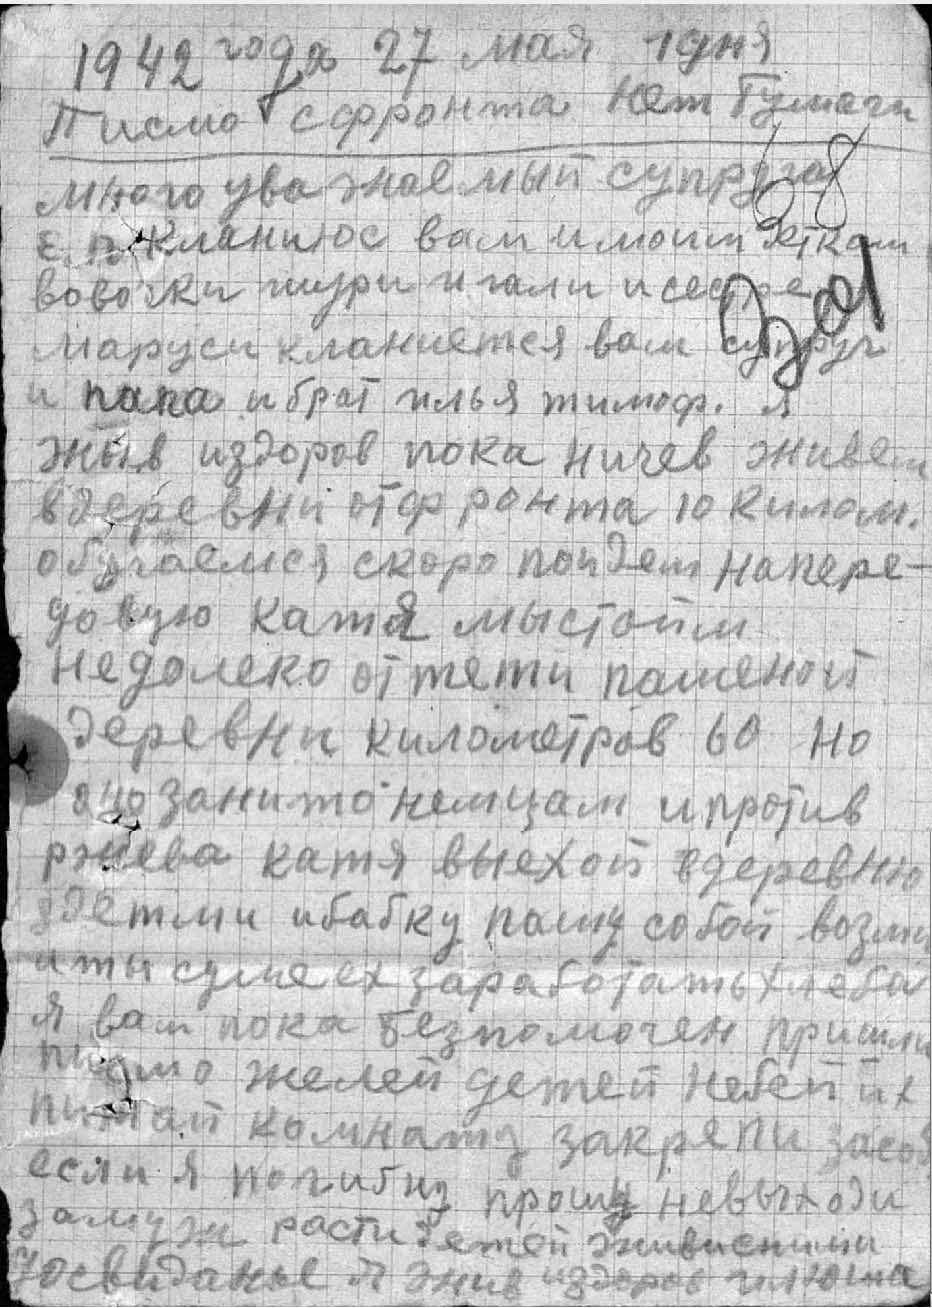 1942 года 27 мая 1 дня
Писмо сфронта нет бумаги
много уважаемый супруга
кланиюс вам и моим деткам
вовочки шури и гали и сестре
маруси кланиется вам супруг
и папа и брат илья тимоф. я
жыв издоров пока ничев живем
вдеревни отфронта 10 килом.
обучаемся скоро пойдем напере-
довую катя мыстоим
недолеко оттети пашеной
деревни километров 60 но
оно занито немцам и против
ржева катя выехой вдеревню
здетми ибабку пашу собой возми
и ты сумеех заработать хлеба
я вам пока безпомочен пришли
писмо желей детей небей их
питай комнату закрепи засоб
если я погибну прошу невыходи
замуж расти детей живисними
Досвиданье я жив издоров илюша